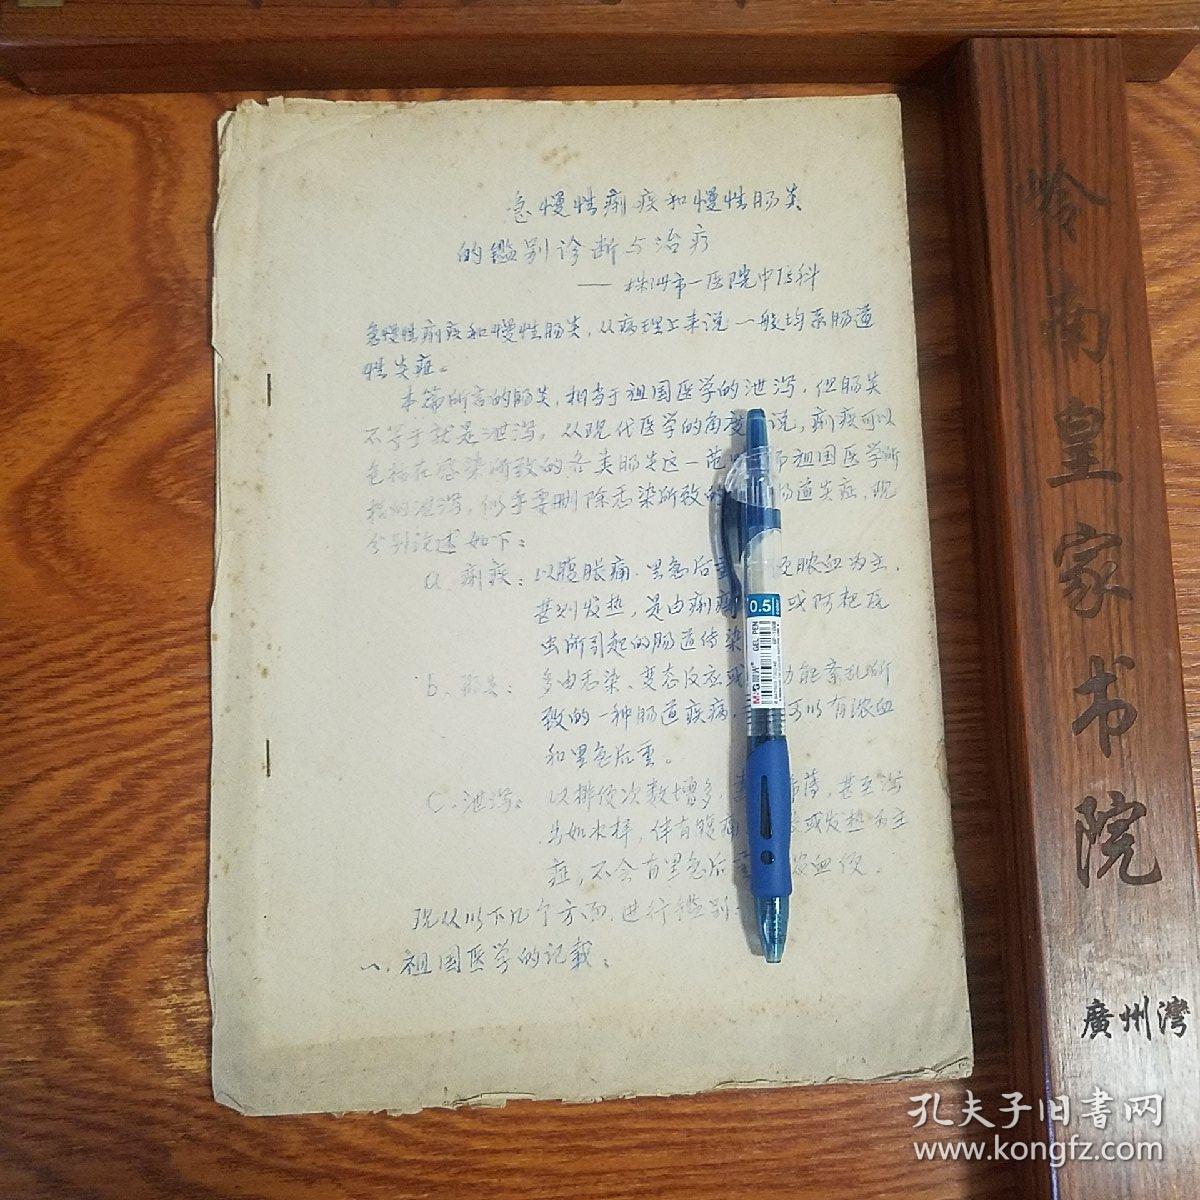 急慢性痢疾和慢性肠炎
的鑑别诊断与治疗
——株洲市一医院中医科
急慢性痢疾和慢性肠炎，从病理上来说一般均系肠道
性炎症。
本篇所言的肠炎，相当于祖国医学的泄泻，但肠炎
不等于就是泄泻，从现代医学的角度 说，痢疾可以
包括在感染所致的各类肠炎这一范 祖国医学所
指的泄泻，似乎要删除感染所致的 肠道炎症，现
分别论述如下：
a. 痢疾：以腹胀痛、里急后重 便脓血为主，
甚则发热，是由痢疾 或阿粑瓦
虫所引起的肠道传染
b、肠炎：多由感染、变态反应或 功能紊乱所
致的一种肠道疾病， 可以有浓血
和里急后重。
C、泄泻：以排便次数增多， 稀薄，甚至泻
如水样，伴有腹痛 或发热为主
症，不会有里急后重 浓血便。
现从以下几个方面，进行鑑别：
一、祖国医学的记载：
0.5
M&G
GEL PEN
岭南皇家书院
廣州灣
孔夫子旧書网
www.kongfz.com